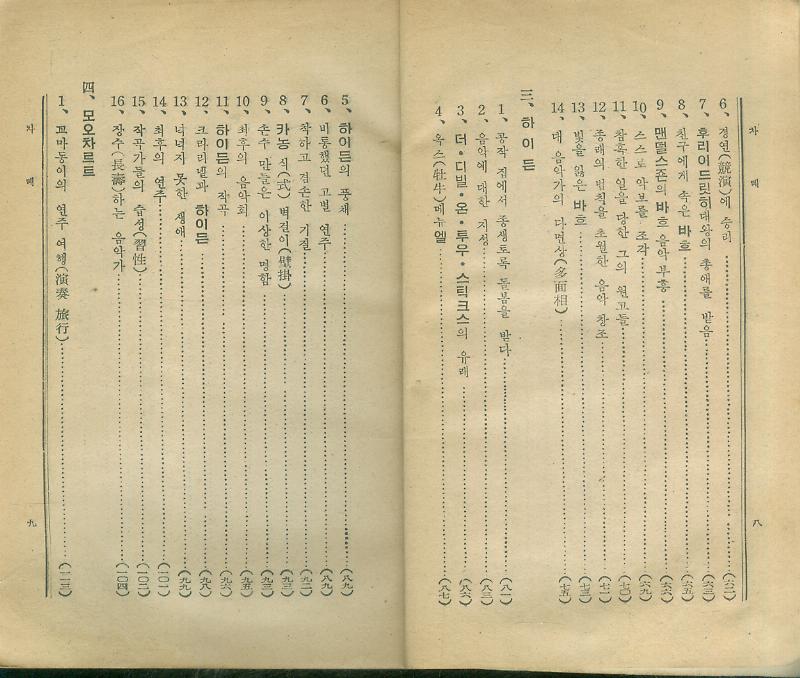 차 례
八
6、 경연(競演)에 승리 (六二)
7、 후리이드릿히대왕의 총애를 받음 (六三)
8、 친구에게 속은 바흐 (六五)
9、 맨덜스존의 바흐 음악 부흥 (六六)
10、 스스로 악보를 조각 (六九)
11、 참혹한 일을 당한 그의 원고들 (七〇)
12、 종래의 법칙을 초원한 음악 창조 (七一)
13、 빛을 잃은 바흐 (七三)
14、 대 음악가의 다면상(多面相) (七五)
三、 하 이 든
1、 공작 집에서 종생토록 돌봄을 받다 (八一)
2、 음악에 대한 지성 (八三)
3、 더•디빌•온•투우•스틱크스의 유래 (八六)
4、 옥스(牡牛)메뉴엘 (八七)
5、 하이든의 풍채 (八九)
6、 비통했던 고별 연주 (八九)
7、 착하고 겸손한 기질 (九二)
8、 카농 식(式) 벽걸이(壁掛) (九三)
9、 손수 만들은 이상한 명함 (九三)
10、 최후의 음악회 (九五)
11、 하이든의 작곡 (九六)
12、 크마리넬과 하이든 (九八)
13、 넉넉지 못한 생애 (九九)
14、 최후의 연주 (一〇一)
15、 작곡가들의 습성(習性) (一〇二)
16、 장수(長壽)하는 음악가 (一〇四)
四、 모오차르트
1、 꼬마둥이의 연주 여행(演奏 旅行) (一一三)
차 례
九